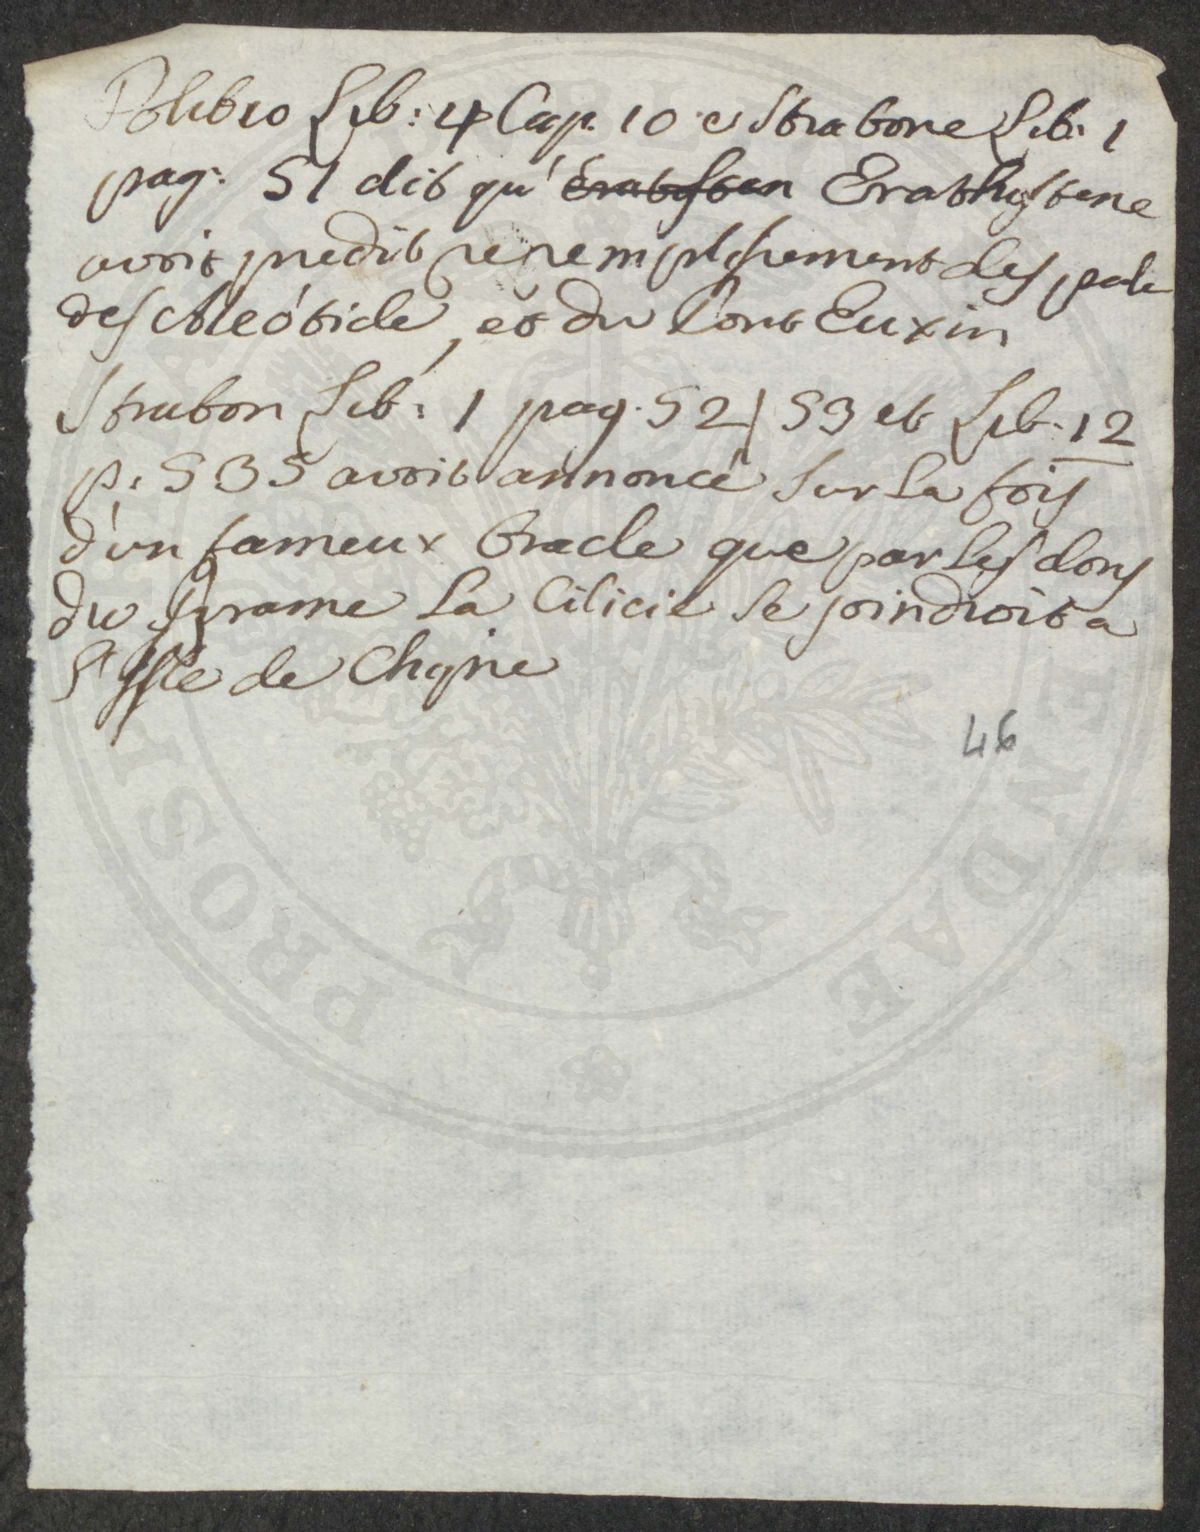 Polibio Lib: 4 Cap. 10 e Strabone Lib: 1
pag: 51 dit qu' Eratosten Erathostene
avoit predit le remplissement des palu
des Meótide, et du Pont Euxin
Strabon Lib: 1 pag. 52/53 et Lib. 12
p: 535 avoit annoncé sur la foy
d'un fameux Oracle que par les dons
du Pyrame la Cilicie se joindroit a
l'Isle de Chypre
46
PROSI ENDAE